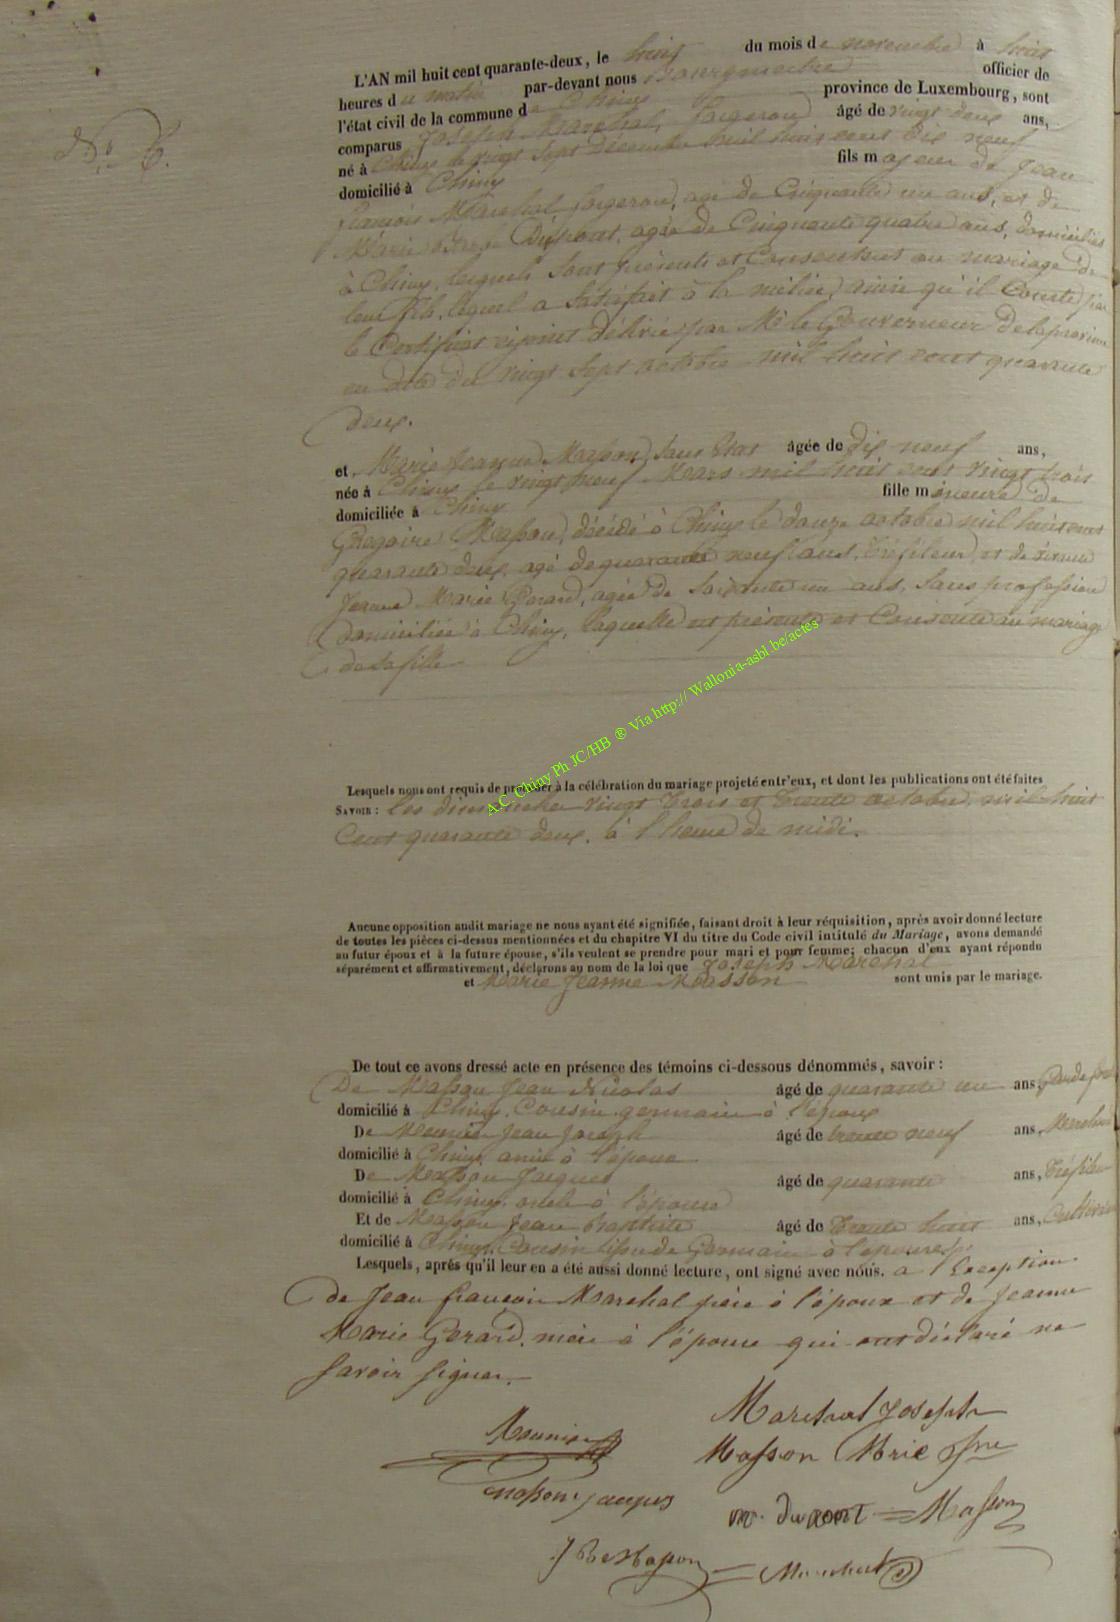 L'AN mil huit cent quarante-deux, le huit du mois de novembre à huit
heures du matin par-devant nous Bourgmestre officier de
l'état civil de la commune de Chiny province de Luxembourg, sont
comparus Joseph Marchal, forgeron, âgé de vingt deux ans,
né à Chiny le vingt sept décembre mil huit cent dix neuf
domicilié à Chiny fils majeur de Jean
françois Marchal forgeron, agé de Cinquante un ans, et de
Marie Dupont, agée de Cinquante quatre ans, domiciliés
à Chiny, lesquels sont présents et Consentent au mariage de
leur fils, lequel a satisfait à la milice, ainsi qu'il Conste par
le Certificat cijoint délivré par Mr le Gouverneur de la province
en date du vingt sept octobre mil huit cent quarante
deux.
N° 6.
et Marie Jeanne Masson, sans état âgée de dix neuf ans,
née à Chiny le vingt neuf Mars mil huit cent vingt trois
domiciliée à Chiny fille mineure de
Grégoire Masson, décédé à Chiny le douze octobre mil huit cent
quarante deux, agé de quarante neuf ans, Tréfileur, et de
Jeanne Marie Gerard, agée de Soixante un ans, Sans profession
domiciliée à Chiny, laquelle est présente et Consente au mariage
de sa fille
Lesquels nous ont requis de procéder à la célébration du mariage projeté entr'eux, et dont les publications ont été faites
SAVOIR : les dimanches vingt trois et trente octobre, mil huit
Cent quarante deux, à l'heure de midi.
Aucune opposition audit mariage ne nous ayant été signifiée, faisant droit à leur réquisition, après avoir donné lecture
de toutes les pièces ci-dessus mentionnées et du chapitre VI du titre du Code civil intitulé du Mariage, avons demandé
au futur époux et à la future épouse, s'ils veulent se prendre pour mari et pour femme; chacun d'eux ayant répondu
séparément et affirmativement, déclarons au nom de la loi que Joseph Marchal
et Marie Jeanne Masson sont unis par le mariage.
De tout ce avons dressé acte en présence des témoins ci-dessous dénommés, savoir :
De Masson Jean Nicolas âgé de quarante un ans, Garde
domicilié à Chiny, Cousin germain à l'époux
De Meunier Jean Joseph âgé de trente neuf ans,
domicilié à Chiny, ami à l'épouse
De Masson Jacques âgé de quarante ans, Tréfileur
domicilié à Chiny, oncle à l'épouse
Et de Masson Jean Baptiste âgé de Trente huit ans, Cultivateur
domicilié à Chiny, Cousin issu de Germain à l'épouse,
Lesquels, après qu'il leur en a été aussi donné lecture, ont signé avec nous. a l'Exception
de Jean françois Marchal père à l'époux et de Jeanne
Marie Gerard, mère à l'épouse qui ont déclaré ne
Savoir signer.
Marchal Joseph
Meunier
Masson Mrie Jne
masson jacques
m. dupont = Masson
J Bte Masson = Marchal
A.C. Chiny Ph JC/HB ® Via http:// Wallonia-asbl.be/actes